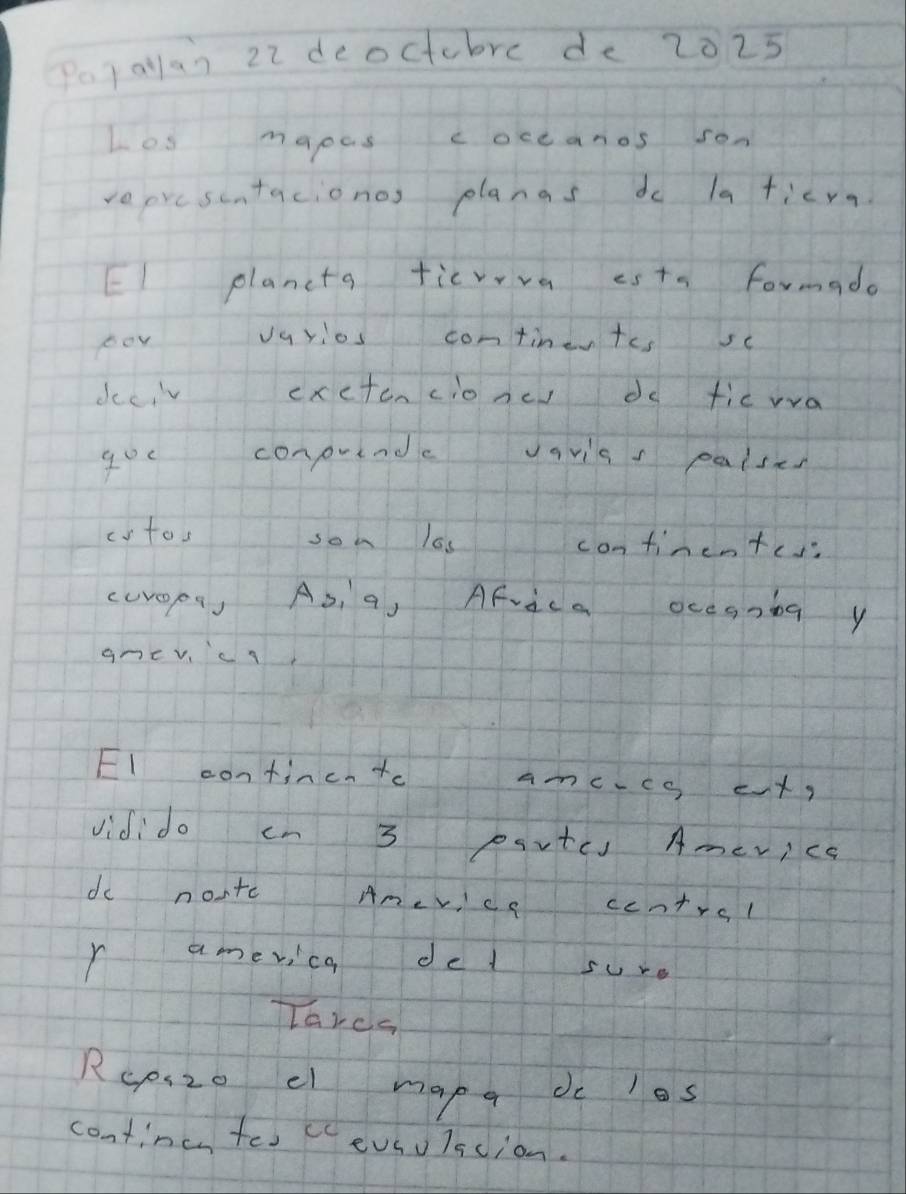 Popayán 22 de octubre de 2025
Los mapas e oceanos son
representacionos planas de la tiera.
El planeta tierrra esta formado
por varios continentes se
decir exetenciones de tierra
que conprende varias paises
estos son los continentes:
europa, Asia, Africa oceania y
america.
El continente america esta
vidido en 3 partes America
de norte America central
y america del sur.
Tarea
Repazo el mapa de los
continentes "evaulacion.